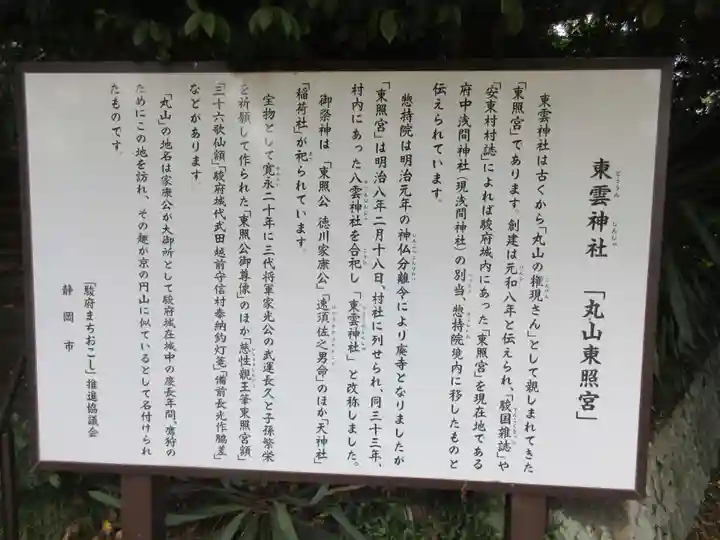 東雲神社　「丸山東照宮」
東雲神社は古くから「丸山の権現さん」として親しまれてきた
「東照宮」であります。創建は元和八年と伝えられ、「駿国雑誌」や
「安東村村誌」によれば駿府城内にあった「東照宮」を現在地である
府中浅間神社（現浅間神社）の別当、惣持院境内に移したものと
伝えられています。
惣持院は明治元年の神仏分離令により廃寺となりましたが
「東照宮」は明治八年二月十八日、村社に列せられ、同三十三年、
村内にあった八雲神社を合祀し「東雲神社」と改称しました。
御祭神は、「東照公　徳川家康公」「速須佐之男命」のほか「天神社」
「稲荷社」が祀られています。
宝物として寛永二十年に三代将軍家光公の武運長久と子孫繁栄
を祈願して作られた「東照公御尊像」のほか「慈性親王筆東照宮額」
「三十六歌仙額」「駿府城代武田越前守信村奉納釣灯篭」「備前長光作脇差」
などがあります。
「丸山」の地名は家康公が大御所として駿府城在城中の慶長年間、鷹狩の
ためにこの地を訪れ、その趣が京の円山に似ているとして名付けられ
たものです。
「駿府まちおこし」推進協議会
静岡市